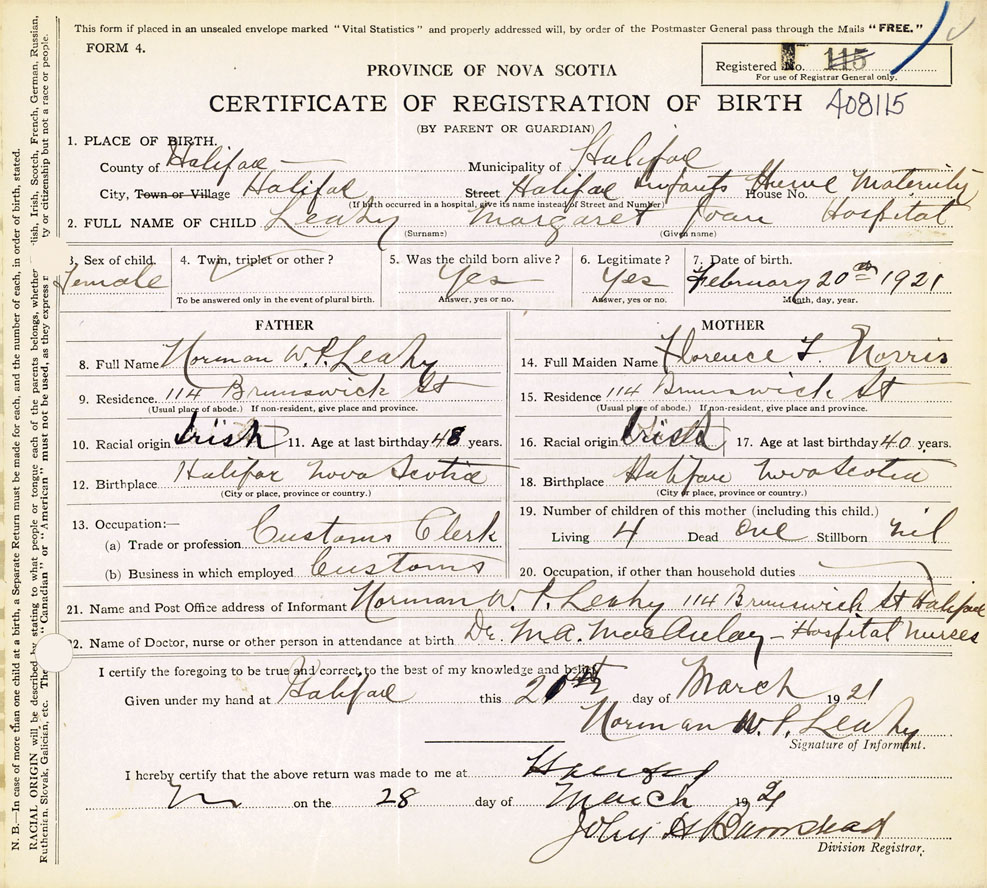 This form if placed in an unsealed envelope marked "Vital Statistics" and properly addressed will, by order of the Postmaster General pass through the Mails "FREE."
FORM 4.
Registered No. 115
For use of Registrar General only.
PROVINCE OF NOVA SCOTIA
CERTIFICATE OF REGISTRATION OF BIRTH 408115
(BY PARENT OR GUARDIAN)
1. PLACE OF BIRTH.
County of Halifax Municipality of Halifax
City, Town or Village Halifax Street Halifax Infants Home Maternity House No.
(If birth occurred in a hospital, give its name instead of Street and Number)
2. FULL NAME OF CHILD Leahy Margaret Joan Hospital
(Surname) (Given name)
3. Sex of child. 4. Twin, triplet or other? 5. Was the child born alive? 6. Legitimate? 7. Date of birth.
Female Yes Yes February 20th 1921
To be answered only in the event of plural birth. Answer, yes or no. Answer, yes or no. Month, day, year.
FATHER
8. Full Name Norman W. P. Leahy
9. Residence. 114 Brunswick St
(Usual place of abode.) If non-resident, give place and province.
10. Racial origin Irish 11. Age at last birthday 48 years.
12. Birthplace Halifax Nova Scotia
(City or place, province or country.)
13. Occupation:—
(a) Trade or profession Customs Clerk
(b) Business in which employed Customs
MOTHER
14. Full Maiden Name Florence F. Norris
15. Residence 114 Brunswick St
(Usual place of abode.) If non-resident, give place and province.
16. Racial origin Irish 17. Age at last birthday 40 years.
18. Birthplace Halifax Nova Scotia
(City or place, province or country.)
19. Number of children of this mother (including this child.)
Living 4 Dead One Stillborn nil
20. Occupation, if other than household duties
21. Name and Post Office address of Informant Norman W. P. Leahy 114 Brunswick St Halifax
22. Name of Doctor, nurse or other person in attendance at birth Dr. M. A. MacAulay - Hospital Nurses
I certify the foregoing to be true and correct to the best of my knowledge and belief.
Given under my hand at Halifax this day of March 1921
Norman W. P. Leahy
Signature of Informant.
I hereby certify that the above return was made to me at Halifax
on the 28 day of March 1921
John H Barnstead
Division Registrar.
N. B.—In case of more than one child at a birth, a Separate Return must be made for each, and the number of each, in order of birth, stated.
RACIAL ORIGIN will be described by stating to what people or tongue each of the parents belongs, whether lish, Irish, Scotch, French, German, Russian,
Ruthenian, Slovak, Galician, etc. The "Canadian" or "American" must not be used, as they express ty or citizenship but not a race or people.